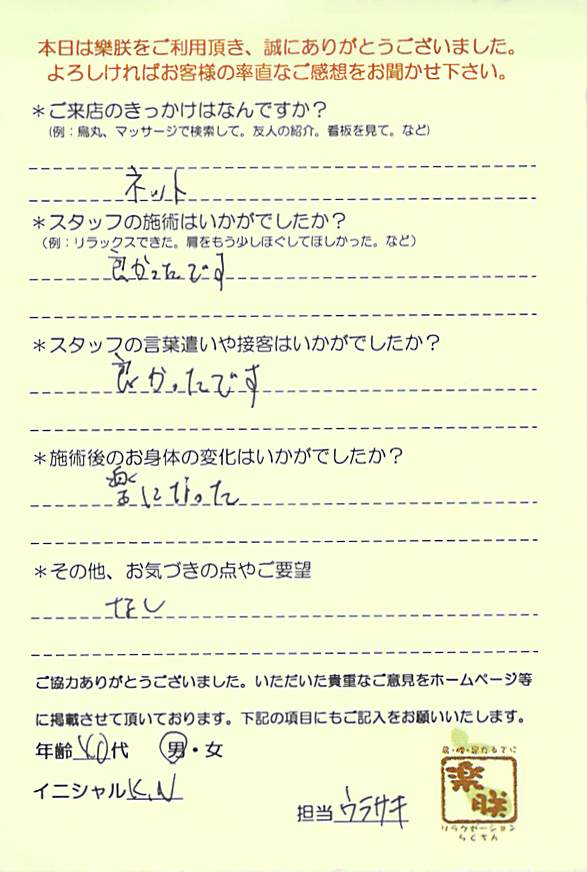 本日は樂朕をご利用頂き、誠にありがとうございました。
よろしければお客様の率直なご感想をお聞かせ下さい。
＊ご来店のきっかけはなんですか？
（例：烏丸、マッサージで検索して。友人の紹介。看板を見て。など）
ネット
＊スタッフの施術はいかがでしたか？
（例：リラックスできた。肩をもう少しほぐしてほしかった。など）
良かったです
＊スタッフの言葉遣いや接客はいかがでしたか？
良かったです
＊施術後のお身体の変化はいかがでしたか？
楽になった
＊その他、お気づきの点やご要望
なし
ご協力ありがとうございました。いただいた貴重なご意見をホームページ等
に掲載させて頂いております。下記の項目にもご記入をお願いいたします。
年齢40代 男・女
イニシャルK.N
担当 ウラサキ
楽朕
リラクゼーション
らくちん